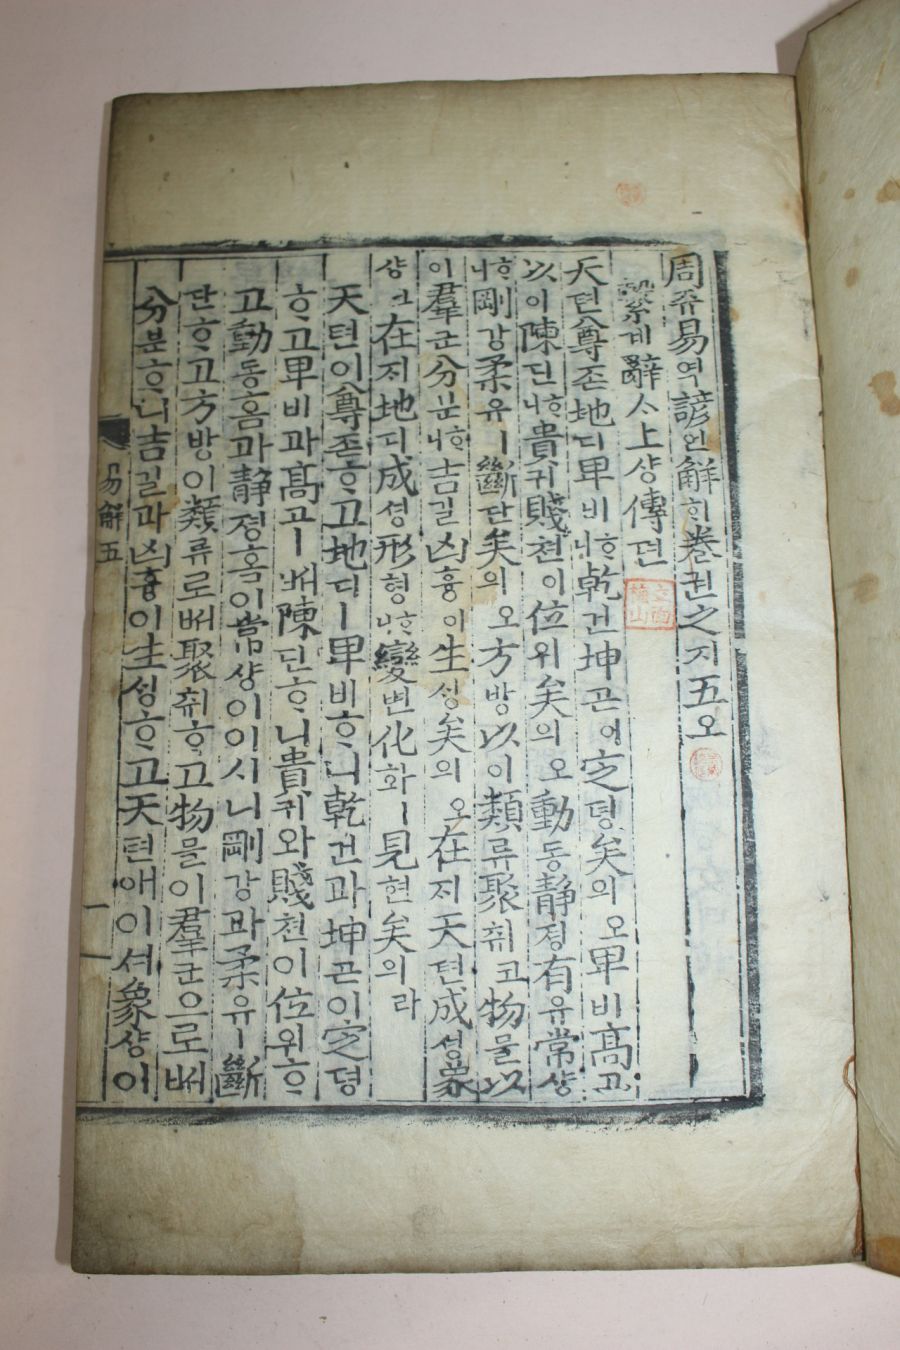 周쥬易역諺언解ᄒᆡ卷권之지五오
繫계辭ᄉᆞ上샹傳뎐
天텬尊존地디卑비ᄒᆞ니乾건坤곤어定뎡矣의오卑비高고
以이陳딘ᄒᆞ니貴귀賤쳔이位위矣의오動동靜졍有유常샹
ᄒᆞ니剛강柔유ㅣ斷단矣의오方방以이類류聚취코物믈以
이羣군分분ᄒᆞ니吉길凶흉이生ᄉᆡᆼ矣의오在ᄌᆡ天텬成셩象
샹코在ᄌᆡ地디成셩形형ᄒᆞ니變변化화ㅣ見현矣의라
天텬이尊존ᄒᆞ고地디ㅣ卑비ᄒᆞ니乾건과坤곤이定뎡
ᄒᆞ고卑비과高고ㅣᄡᅥ陳딘ᄒᆞ니貴귀와賤쳔이位위ᄒᆞ
고動동홈과靜졍홈이常샹이이시니剛강과柔유ㅣ斷
단ᄒᆞ고方방이類류로ᄡᅥ聚취ᄒᆞ고物믈이羣군으로ᄡᅥ
分분ᄒᆞ니吉길과凶흉이生ᄉᆡᆼᄒᆞ고天텬애이셔象샹이
易解五
一